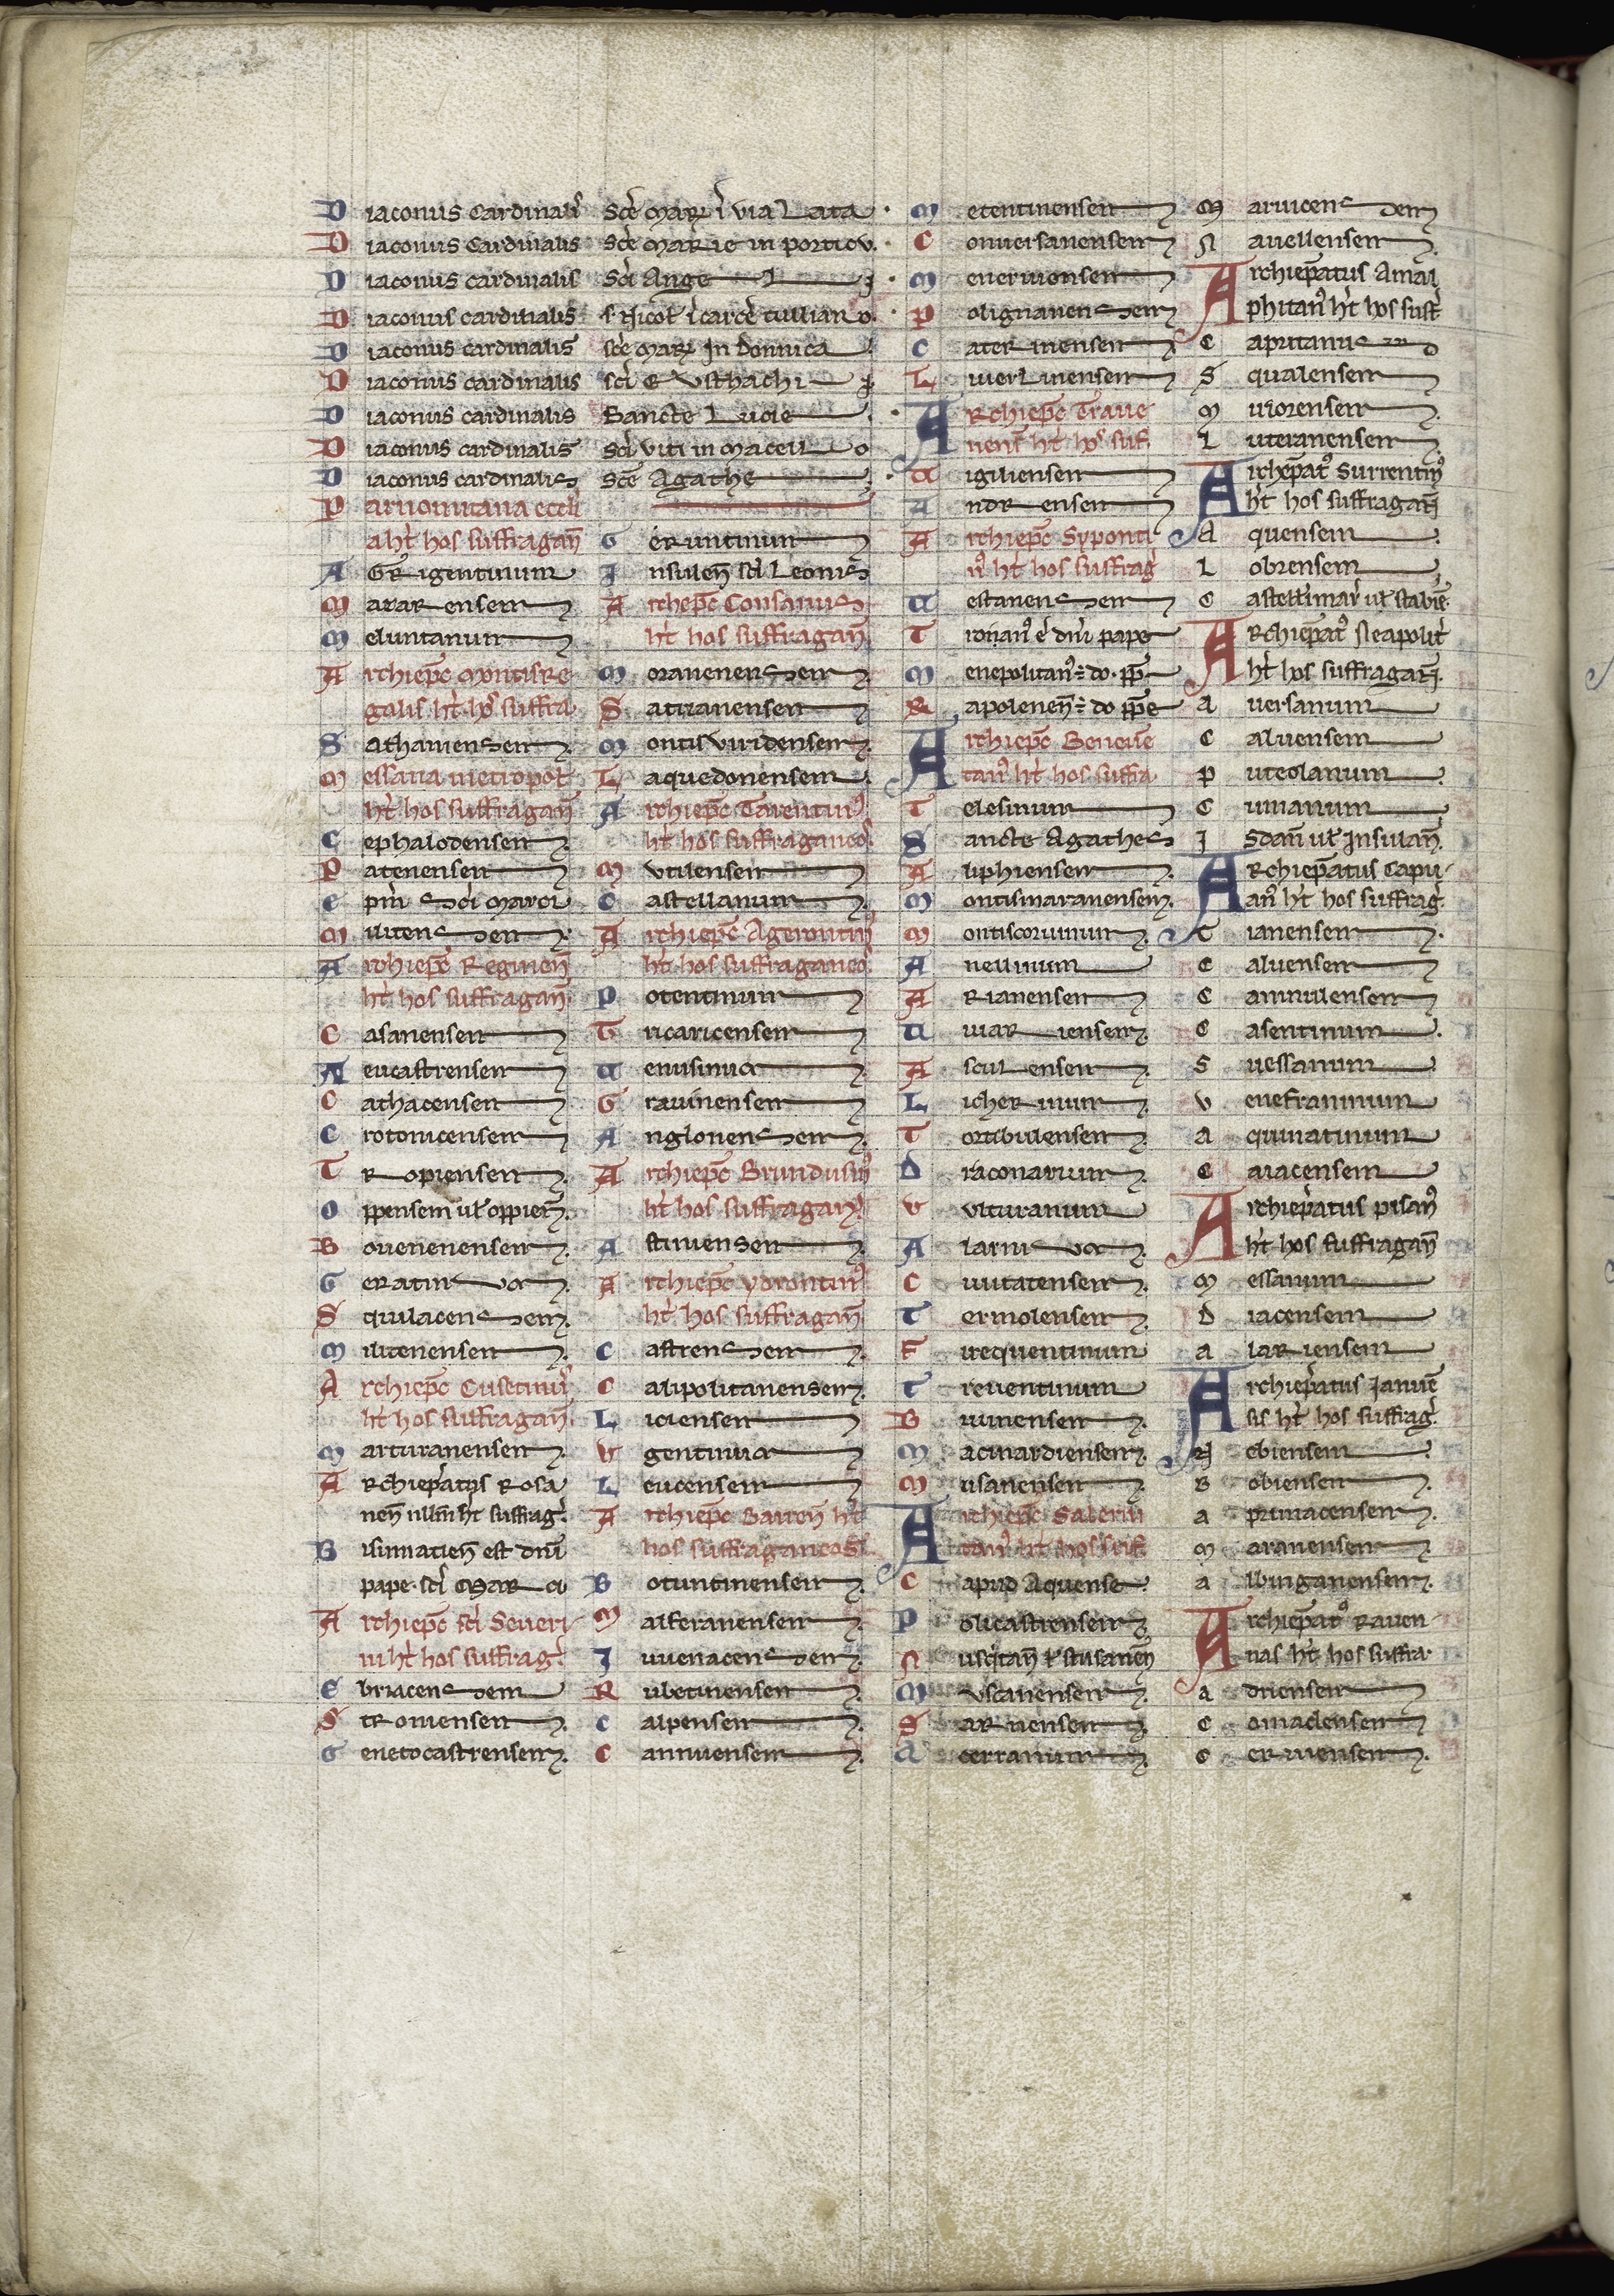 Diaconus Cardinał̄ Scē Marꝝ ī via Lata
Diaconus Cardinalis Scē Marie in porticu.
Diaconus cardinalis Scī Angeli
Diaconus cardinalis s. Nicoł ī carcē tulliano.
Diaconus cardinalis scē Marꝝ In Domnica
Diaconus cardinalis scī Eusthachii
Diaconus cardinalis Sancte Lucie
Diaconus cardinalis Scī Viti in Macello
Diaconus cardinalis Scē Agathe
Panormitana eccłi
a ht̄ hos suffragan̄
AGrigentinum
Mazarensem
Meluntanum
Archiepc̄ Montis Re
galis ht̄ hos suffra
Sathaniensem
Messana metropol
ht̄ hos suffragan̄
Cephalodensem
Patenensem
Militensem
Archiepc̄ Reginen̄
ht̄ hos suffragan̄
Casanensem
Neucastrensem
Cathacensem
Crotonicensem
Tropiensem
Oppensem ul̄ oppien̄.
Bouenenensem
Geratinum
Squilacensem
Militenensem
Archiepc̄ Cusetinꝰ
ht̄ hos suffragan̄
Marturanensem
Archiepatus Rosa
nen̄ nullm̄ ht̄ suffraḡ.
Bisinnacien̄ est dn̄i
pape. scī Marci
Archiepc̄ scī Seueri
ni ht̄ hos suffraḡ.
Ebriacensem
Stroniensem
Genetocastrensem
Geruntinum
Insulen̄ scī Leonis
Archepc̄ Consanus
ht̄ hos suffragan̄
Morauenensem
Satrianensem
Montis Viridensem
Laquedonensem
Archiepc̄ Tarentinꝰ
ht̄ hos suffraganeos
Mutilensem
Castellanum
Archiepc̄ Agerontinꝰ
ht̄ hos suffraganeos
Potentinum
Tricaricensem
Venusinum
Grauinensem
Anglonensem
Archiepc̄ Brundusinꝰ
ht̄ hos suffragan̄
Astunensem
Archiepc̄ ydrontinꝰ
ht̄ hos suffragan̄
Castrensem
Calipolitanensem
Liciensem
Vgentinum
Leucensem
Archiepc̄ Baren̄ ht̄
hos suffraganeos.
Botuntinensem
Malfetanensem
Iuuenacensem
Rubetinensem
Calpensem
Cannuensem
Metentinensem
Conuersanensem
Meneruionensem
Polignanensem
Caterinensem
Liuerlinensem
Archiepc̄ Traue
nens̄ ht̄ hos suf.
Vigiliensem
Andrensem
Archiepc̄ Syponti
nꝰ ht̄ hos suffraḡ
Vestanensem
Troianꝰ ē dn̄i pape
Menepolitanꝰ ē do. pp̄
Rapolenen̄ ē do pp̄e
Archiepc̄ Beneue
tanꝰ ht̄ hos suffra
Telesinum
Sancte Agathes
Aliphiensem
Montismaranensem
Montiscoruinum
Auellinum
Arianensem
Vuiariensem
Asculensem
Licherinum
Tortibulensem
Draconarium
Vulturanum
Alarinum
Ciuitatensem
Termolensem
Frequentinum
Treuentinum
Biminensem
Macinardiensem
Musanensem
Archiepc̄ Salerni
tanꝰ ht̄ hos suf
Capud Aquense
Policastrensem
Muscanensem
Sarnensem
Acerranum
Maruicensem
Nauellensem
Archiepatus Amal
phitanꝰ ht̄ hos suff̄
Caputanum
Squalensem
Miorensem
Luteranensem
Archiepatꝰ Surrentinꝰ
ht̄ hos suffragan̄
Aquensem
Lobrensem
Castellimar̄ ul̄ stabiē.
ARchiepatꝰ Neapolit̄
ht̄ hos suffragan̄.
Auersanum
Caluensem
Puteolanum
Cumanum
ISclan̄ ul̄ Insulan̄.
ARchiepatus Capu
anꝰ ht̄ hos suffraḡ.
Tianensem
Caluensem
Camnilensem
Casentinum
Suessanum
Venefranmum
Aquinatinum
Caiacensem
Archiepatus pisanꝰ
ht̄ hos suffragan̄
Messanum
Diacensem
Alariensem
Archiepatus Ianuē
sis ht̄ hos suffraḡ.
Nebiensem
Bobiensem
Aprinacensem
Maranensem
Albinganensem
Archiepatꝰ Rauen
nas ht̄ hos suffra
Adriensem
Comaclensem
Ceruiensem